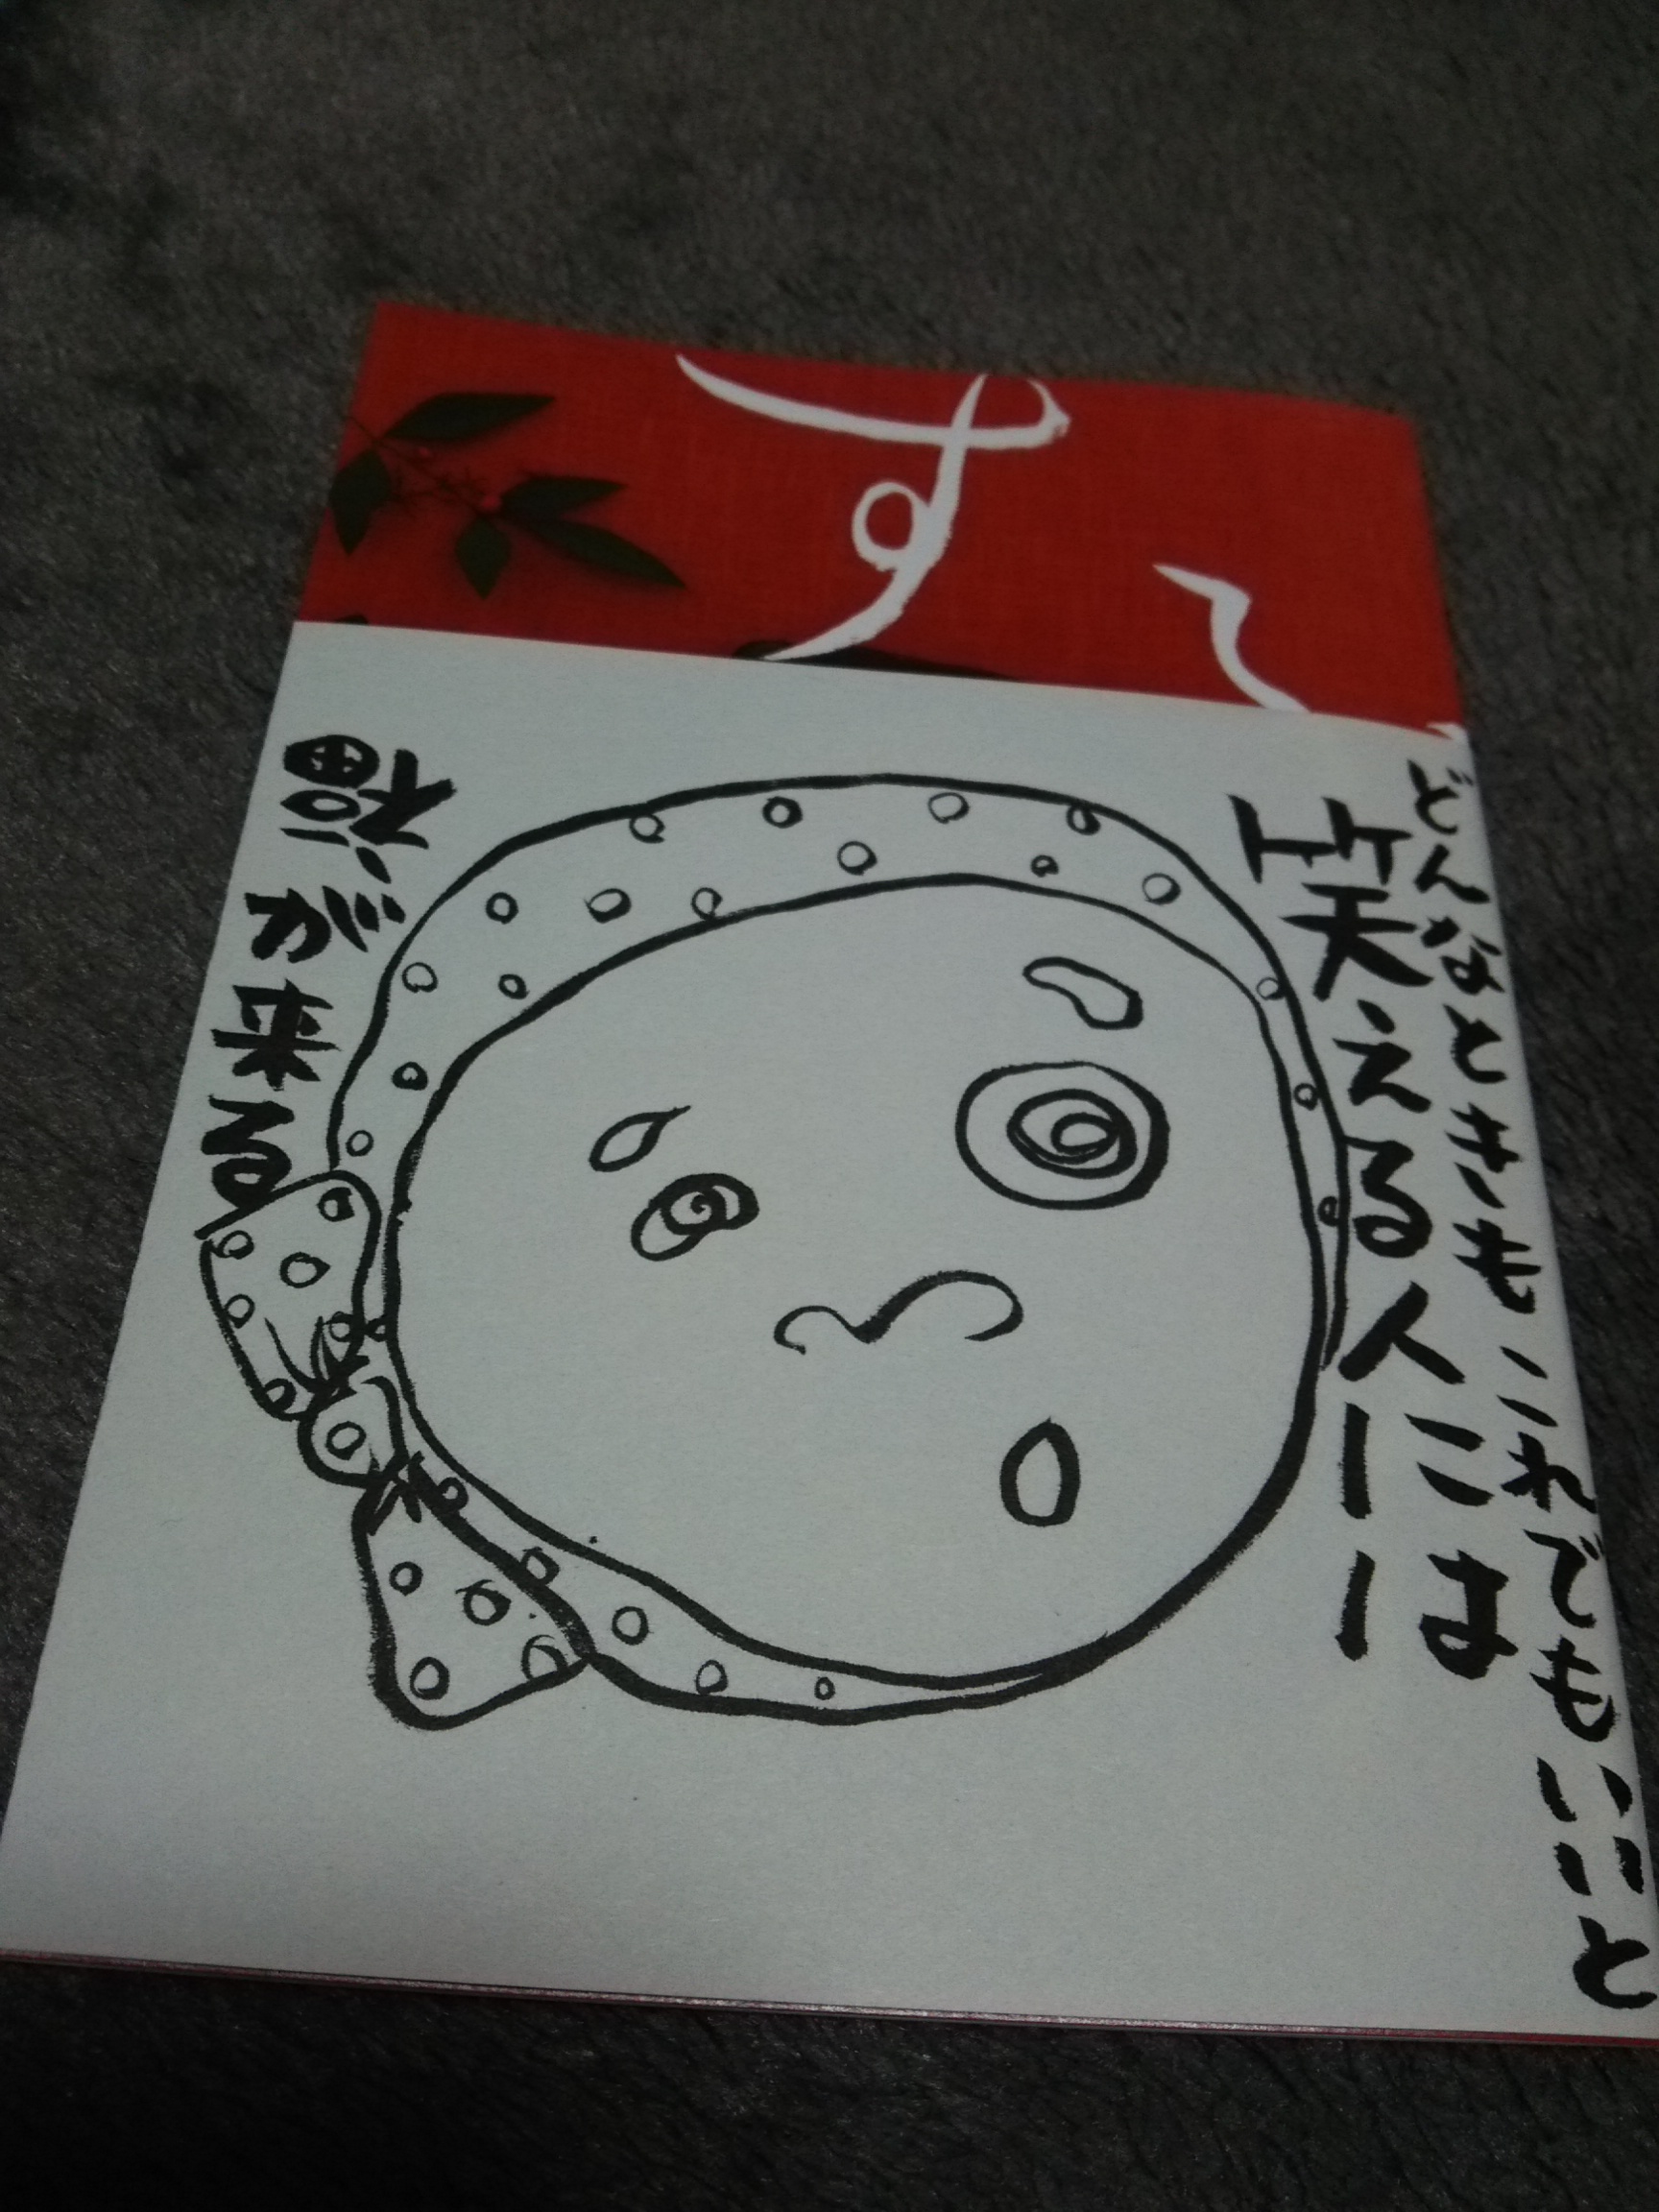 す
どんなときもこれでもいいと
笑える人には
福が来る